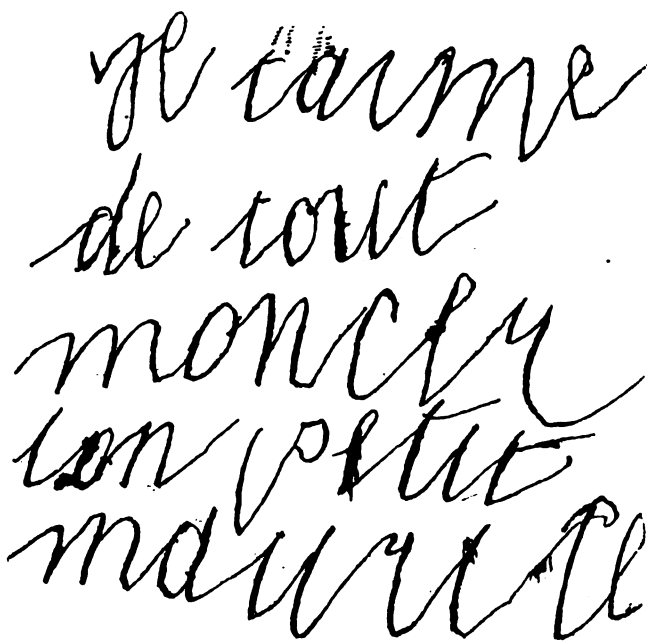 je taime
de tout
moncer
ton petit
maurice